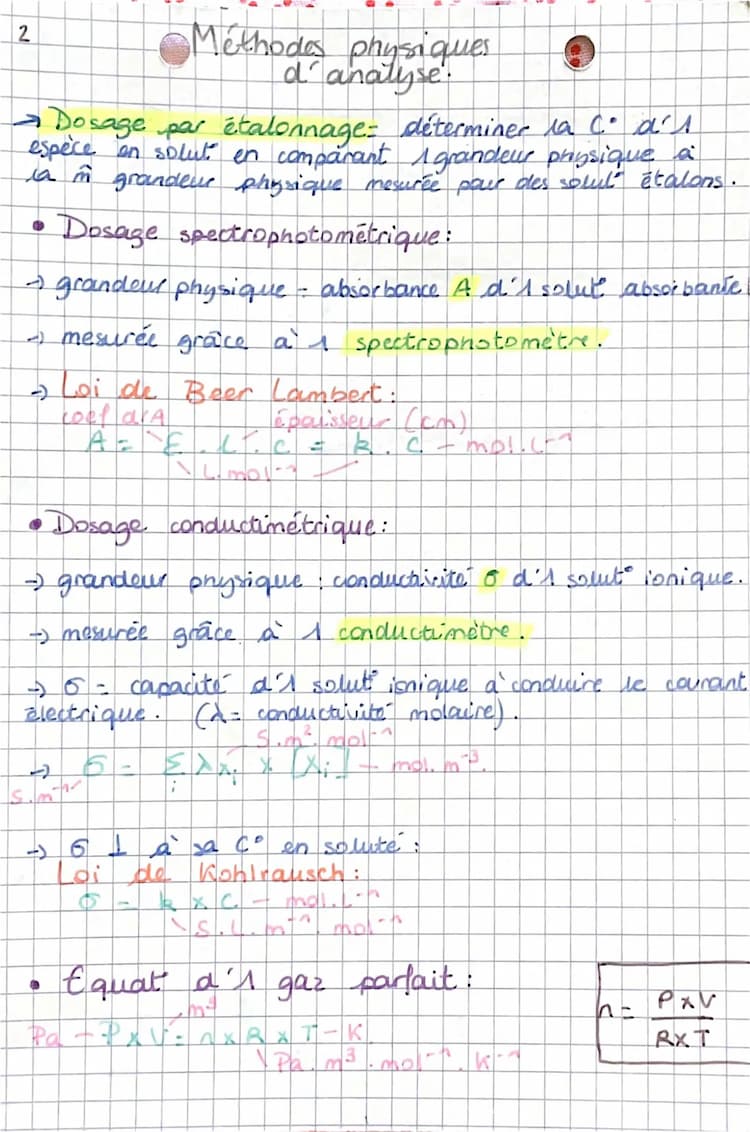 2
Méthodes physiques
d'analyse.
→ Dosage par étalonnage = déterminer la C° d'1
espèce en solut° en comparant 1 grandeur physique à
la m̂ grandeur physique mesurée pour des solut° étalons.
• Dosage spectrophotométrique :
→ grandeur physique = absorbance A d'1 solut° absorbante
→ mesurée grâce à 1 spectrophotomètre.
→ Loi de Beer Lambert :
coef d'A épaisseur (cm)
A = ε . l . c = k . C - mol.L⁻¹
L.mol⁻¹
• Dosage conductimétrique :
→ grandeur physique : conductivité σ d'1 solut° ionique.
→ mesurée grâce à 1 conductimètre.
→ σ = capacité d'1 solut° ionique à conduire le courant
électrique. (λ = conductivité molaire).
S.m².mol⁻¹
→ σ = Σ λxi × [Xi] - mol.m⁻³.
i
S.m⁻¹
→ σ ⊥ à sa C° en soluté :
Loi de Kohlrausch :
σ = k × C - mol.L⁻¹
S.L.m⁻¹.mol⁻¹
• Equat° d'1 gaz parfait :
m³
Pa - P × V = n × R × T - K
Pa.m³.mol⁻¹.K⁻¹
n = P×V
R×T